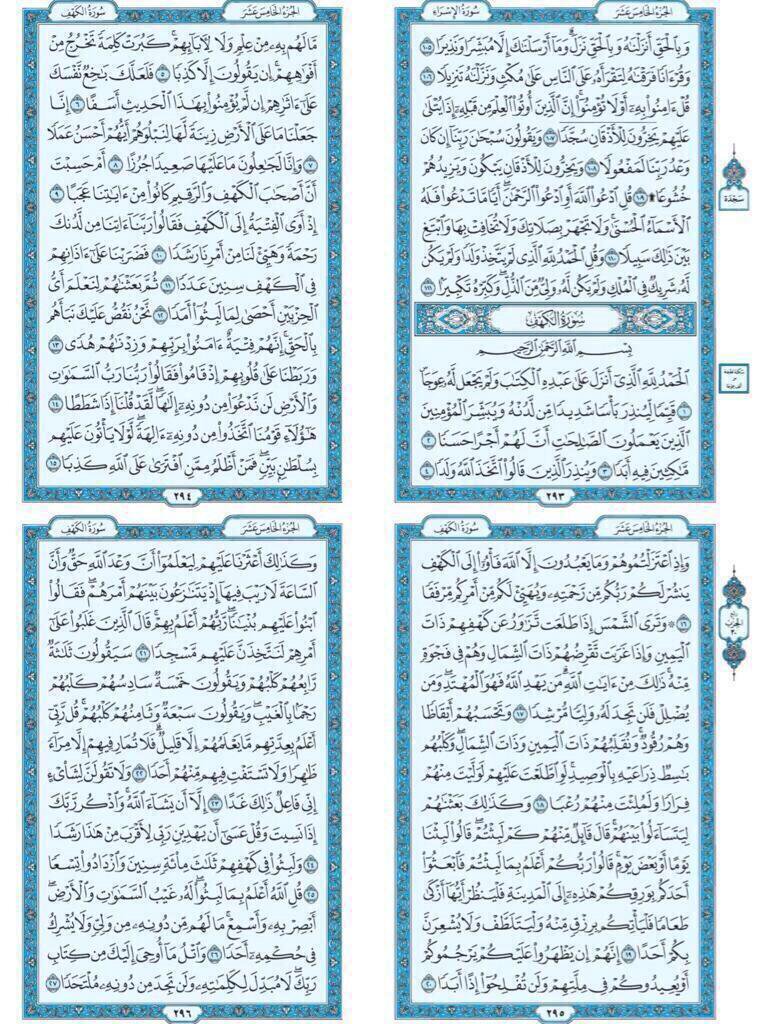 الجزء الخامس عشر
سورة الإسراء
وَبِالْحَقِّ أَنزَلْنَاهُ وَبِالْحَقِّ نَزَلَ وَمَا أَرْسَلْنَاكَ إِلَّا مُبَشِّرًا وَنَذِيرًا ١٠٥
وَقُرْءَانًا فَرَقْنَاهُ لِتَقْرَأَهُ عَلَى النَّاسِ عَلَى مُكْثٍ وَنَزَّلْنَاهُ تَنزِيلًا ١٠٦
قُلْ ءَامِنُوا بِهِ أَوْ لَا تُؤْمِنُوا إِنَّ الَّذِينَ أُوتُوا الْعِلْمَ مِن قَبْلِهِ إِذَا يُتْلَى
عَلَيْهِمْ يَخِرُّونَ لِلْأَذْقَانِ سُجَّدًا ١٠٧ وَيَقُولُونَ سُبْحَانَ رَبِّنَا إِن كَانَ
وَعْدُ رَبِّنَا لَمَفْعُولًا ١٠٨ وَيَخِرُّونَ لِلْأَذْقَانِ يَبْكُونَ وَيَزِيدُهُمْ
خُشُوعًا ۩ ١٠٩ قُلِ ادْعُوا اللَّهَ أَوِ ادْعُوا الرَّحْمَٰنَ أَيًّا مَّا تَدْعُوا فَلَهُ
الْأَسْمَاءُ الْحُسْنَى وَلَا تَجْهَرْ بِصَلَاتِكَ وَلَا تُخَافِتْ بِهَا وَابْتَغِ
بَيْنَ ذَٰلِكَ سَبِيلًا ١١٠ وَقُلِ الْحَمْدُ لِلَّهِ الَّذِي لَمْ يَتَّخِذْ وَلَدًا وَلَمْ يَكُن
لَّهُ شَرِيكٌ فِي الْمُلْكِ وَلَمْ يَكُن لَّهُ وَلِيٌّ مِّنَ الذُّلِّ وَكَبِّرْهُ تَكْبِيرًا ١١١
سورة الكهف
بِسْمِ اللَّهِ الرَّحْمَٰنِ الرَّحِيمِ
الْحَمْدُ لِلَّهِ الَّذِي أَنزَلَ عَلَى عَبْدِهِ الْكِتَابَ وَلَمْ يَجْعَل لَّهُ عِوَجًا
١ قَيِّمًا لِّيُنذِرَ بَأْسًا شَدِيدًا مِّن لَّدُنْهُ وَيُبَشِّرَ الْمُؤْمِنِينَ
الَّذِينَ يَعْمَلُونَ الصَّالِحَاتِ أَنَّ لَهُمْ أَجْرًا حَسَنًا ٢
مَّاكِثِينَ فِيهِ أَبَدًا ٣ وَيُنذِرَ الَّذِينَ قَالُوا اتَّخَذَ اللَّهُ وَلَدًا ٤
٢٩٣
سجدة
الجزء الخامس عشر
سورة الكهف
مَّا لَهُم بِهِ مِنْ عِلْمٍ وَلَا لِآبَائِهِمْ كَبُرَتْ كَلِمَةً تَخْرُجُ مِنْ
أَفْوَاهِهِمْ إِن يَقُولُونَ إِلَّا كَذِبًا ٥ فَلَعَلَّكَ بَاخِعٌ نَّفْسَكَ
عَلَى ءَاثَارِهِمْ إِن لَّمْ يُؤْمِنُوا بِهَٰذَا الْحَدِيثِ أَسَفًا ٦ إِنَّا
جَعَلْنَا مَا عَلَى الْأَرْضِ زِينَةً لَّهَا لِنَبْلُوَهُمْ أَيُّهُمْ أَحْسَنُ عَمَلًا
٧ وَإِنَّا لَجَاعِلُونَ مَا عَلَيْهَا صَعِيدًا جُرُزًا ٨ أَمْ حَسِبْتَ
أَنَّ أَصْحَابَ الْكَهْفِ وَالرَّقِيمِ كَانُوا مِنْ ءَايَاتِنَا عَجَبًا ٩
إِذْ أَوَى الْفِتْيَةُ إِلَى الْكَهْفِ فَقَالُوا رَبَّنَا ءَاتِنَا مِن لَّدُنكَ
رَحْمَةً وَهَيِّئْ لَنَا مِنْ أَمْرِنَا رَشَدًا ١٠ فَضَرَبْنَا عَلَى ءَاذَانِهِمْ
فِي الْكَهْفِ سِنِينَ عَدَدًا ١١ ثُمَّ بَعَثْنَاهُمْ لِنَعْلَمَ أَيُّ
الْحِزْبَيْنِ أَحْصَى لِمَا لَبِثُوا أَمَدًا ١٢ نَّحْنُ نَقُصُّ عَلَيْكَ نَبَأَهُم
بِالْحَقِّ إِنَّهُمْ فِتْيَةٌ ءَامَنُوا بِرَبِّهِمْ وَزِدْنَاهُمْ هُدًى ١٣
وَرَبَطْنَا عَلَى قُلُوبِهِمْ إِذْ قَامُوا فَقَالُوا رَبُّنَا رَبُّ السَّمَاوَاتِ
وَالْأَرْضِ لَن نَّدْعُوَا مِن دُونِهِ إِلَٰهًا لَّقَدْ قُلْنَا إِذًا شَطَطًا ١٤
هَٰؤُلَاءِ قَوْمُنَا اتَّخَذُوا مِن دُونِهِ ءَالِهَةً لَّوْلَا يَأْتُونَ عَلَيْهِم
بِسُلْطَانٍ بَيِّنٍ فَمَنْ أَظْلَمُ مِمَّنِ افْتَرَى عَلَى اللَّهِ كَذِبًا ١٥
٢٩٤
الجزء الخامس عشر
سورة الكهف
وَإِذِ اعْتَزَلْتُمُوهُمْ وَمَا يَعْبُدُونَ إِلَّا اللَّهَ فَأْوُوا إِلَى الْكَهْفِ
يَنشُرْ لَكُمْ رَبُّكُم مِّن رَّحْمَتِهِ وَيُهَيِّئْ لَكُم مِّنْ أَمْرِكُم مِّرْفَقًا
١٦ ۞ وَتَرَى الشَّمْسَ إِذَا طَلَعَت تَّزَاوَرُ عَن كَهْفِهِمْ ذَاتَ
الْيَمِينِ وَإِذَا غَرَبَت تَّقْرِضُهُمْ ذَاتَ الشِّمَالِ وَهُمْ فِي فَجْوَةٍ
مِّنْهُ ذَٰلِكَ مِنْ ءَايَاتِ اللَّهِ مَن يَهْدِ اللَّهُ فَهُوَ الْمُهْتَدِ وَمَن
يُضْلِلْ فَلَن تَجِدَ لَهُ وَلِيًّا مُّرْشِدًا ١٧ وَتَحْسَبُهُمْ أَيْقَاظًا
وَهُمْ رُقُودٌ وَنُقَلِّبُهُمْ ذَاتَ الْيَمِينِ وَذَاتَ الشِّمَالِ وَكَلْبُهُم
بَاسِطٌ ذِرَاعَيْهِ بِالْوَصِيدِ لَوِ اطَّلَعْتَ عَلَيْهِمْ لَوَلَّيْتَ مِنْهُمْ
فِرَارًا وَلَمُلِئْتَ مِنْهُمْ رُعْبًا ١٨ وَكَذَٰلِكَ بَعَثْنَاهُمْ
لِيَتَسَاءَلُوا بَيْنَهُمْ قَالَ قَائِلٌ مِّنْهُمْ كَمْ لَبِثْتُمْ قَالُوا لَبِثْنَا
يَوْمًا أَوْ بَعْضَ يَوْمٍ قَالُوا رَبُّكُمْ أَعْلَمُ بِمَا لَبِثْتُمْ فَابْعَثُوا
أَحَدَكُم بِوَرِقِكُمْ هَٰذِهِ إِلَى الْمَدِينَةِ فَلْيَنظُرْ أَيُّهَا أَزْكَى
طَعَامًا فَلْيَأْتِكُم بِرِزْقٍ مِّنْهُ وَلْيَتَلَطَّفْ وَلَا يُشْعِرَنَّ
بِكُمْ أَحَدًا ١٩ إِنَّهُمْ إِن يَظْهَرُوا عَلَيْكُمْ يَرْجُمُوكُمْ
أَوْ يُعِيدُوكُمْ فِي مِلَّتِهِمْ وَلَن تُفْلِحُوا إِذًا أَبَدًا ٢٠
٢٩٥
الجزء الخامس عشر
سورة الكهف
وَكَذَٰلِكَ أَعْثَرْنَا عَلَيْهِمْ لِيَعْلَمُوا أَنَّ وَعْدَ اللَّهِ حَقٌّ وَأَنَّ
السَّاعَةَ لَا رَيْبَ فِيهَا إِذْ يَتَنَازَعُونَ بَيْنَهُمْ أَمْرَهُمْ فَقَالُوا
ابْنُوا عَلَيْهِم بُنْيَانًا رَّبُّهُمْ أَعْلَمُ بِهِمْ قَالَ الَّذِينَ غَلَبُوا عَلَى
أَمْرِهِمْ لَنَتَّخِذَنَّ عَلَيْهِم مَّسْجِدًا ٢١ سَيَقُولُونَ ثَلَاثَةٌ
رَّابِعُهُمْ كَلْبُهُمْ وَيَقُولُونَ خَمْسَةٌ سَادِسُهُمْ كَلْبُهُمْ
رَجْمًا بِالْغَيْبِ وَيَقُولُونَ سَبْعَةٌ وَثَامِنُهُمْ كَلْبُهُمْ قُل رَّبِّي
أَعْلَمُ بِعِدَّتِهِم مَّا يَعْلَمُهُمْ إِلَّا قَلِيلٌ فَلَا تُمَارِ فِيهِمْ إِلَّا مِرَاءً
ظَاهِرًا وَلَا تَسْتَفْتِ فِيهِم مِّنْهُمْ أَحَدًا ٢٢ وَلَا تَقُولَنَّ لِشَايْءٍ
إِنِّي فَاعِلٌ ذَٰلِكَ غَدًا ٢٣ إِلَّا أَن يَشَاءَ اللَّهُ وَاذْكُر رَّبَّكَ
إِذَا نَسِيتَ وَقُلْ عَسَى أَن يَهْدِيَنِ رَبِّي لِأَقْرَبَ مِنْ هَٰذَا رَشَدًا
٢٤ وَلَبِثُوا فِي كَهْفِهِمْ ثَلَاثَ مِائَةٍ سِنِينَ وَازْدَادُوا تِسْعًا
٢٥ قُلِ اللَّهُ أَعْلَمُ بِمَا لَبِثُوا لَهُ غَيْبُ السَّمَاوَاتِ وَالْأَرْضِ
أَبْصِرْ بِهِ وَأَسْمِعْ مَا لَهُم مِّن دُونِهِ مِن وَلِيٍّ وَلَا يُشْرِكُ
فِي حُكْمِهِ أَحَدًا ٢٦ وَاتْلُ مَا أُوحِيَ إِلَيْكَ مِن كِتَابِ
رَبِّكَ لَا مُبَدِّلَ لِكَلِمَاتِهِ وَلَن تَجِدَ مِن دُونِهِ مُلْتَحَدًا ٢٧
٢٩٦